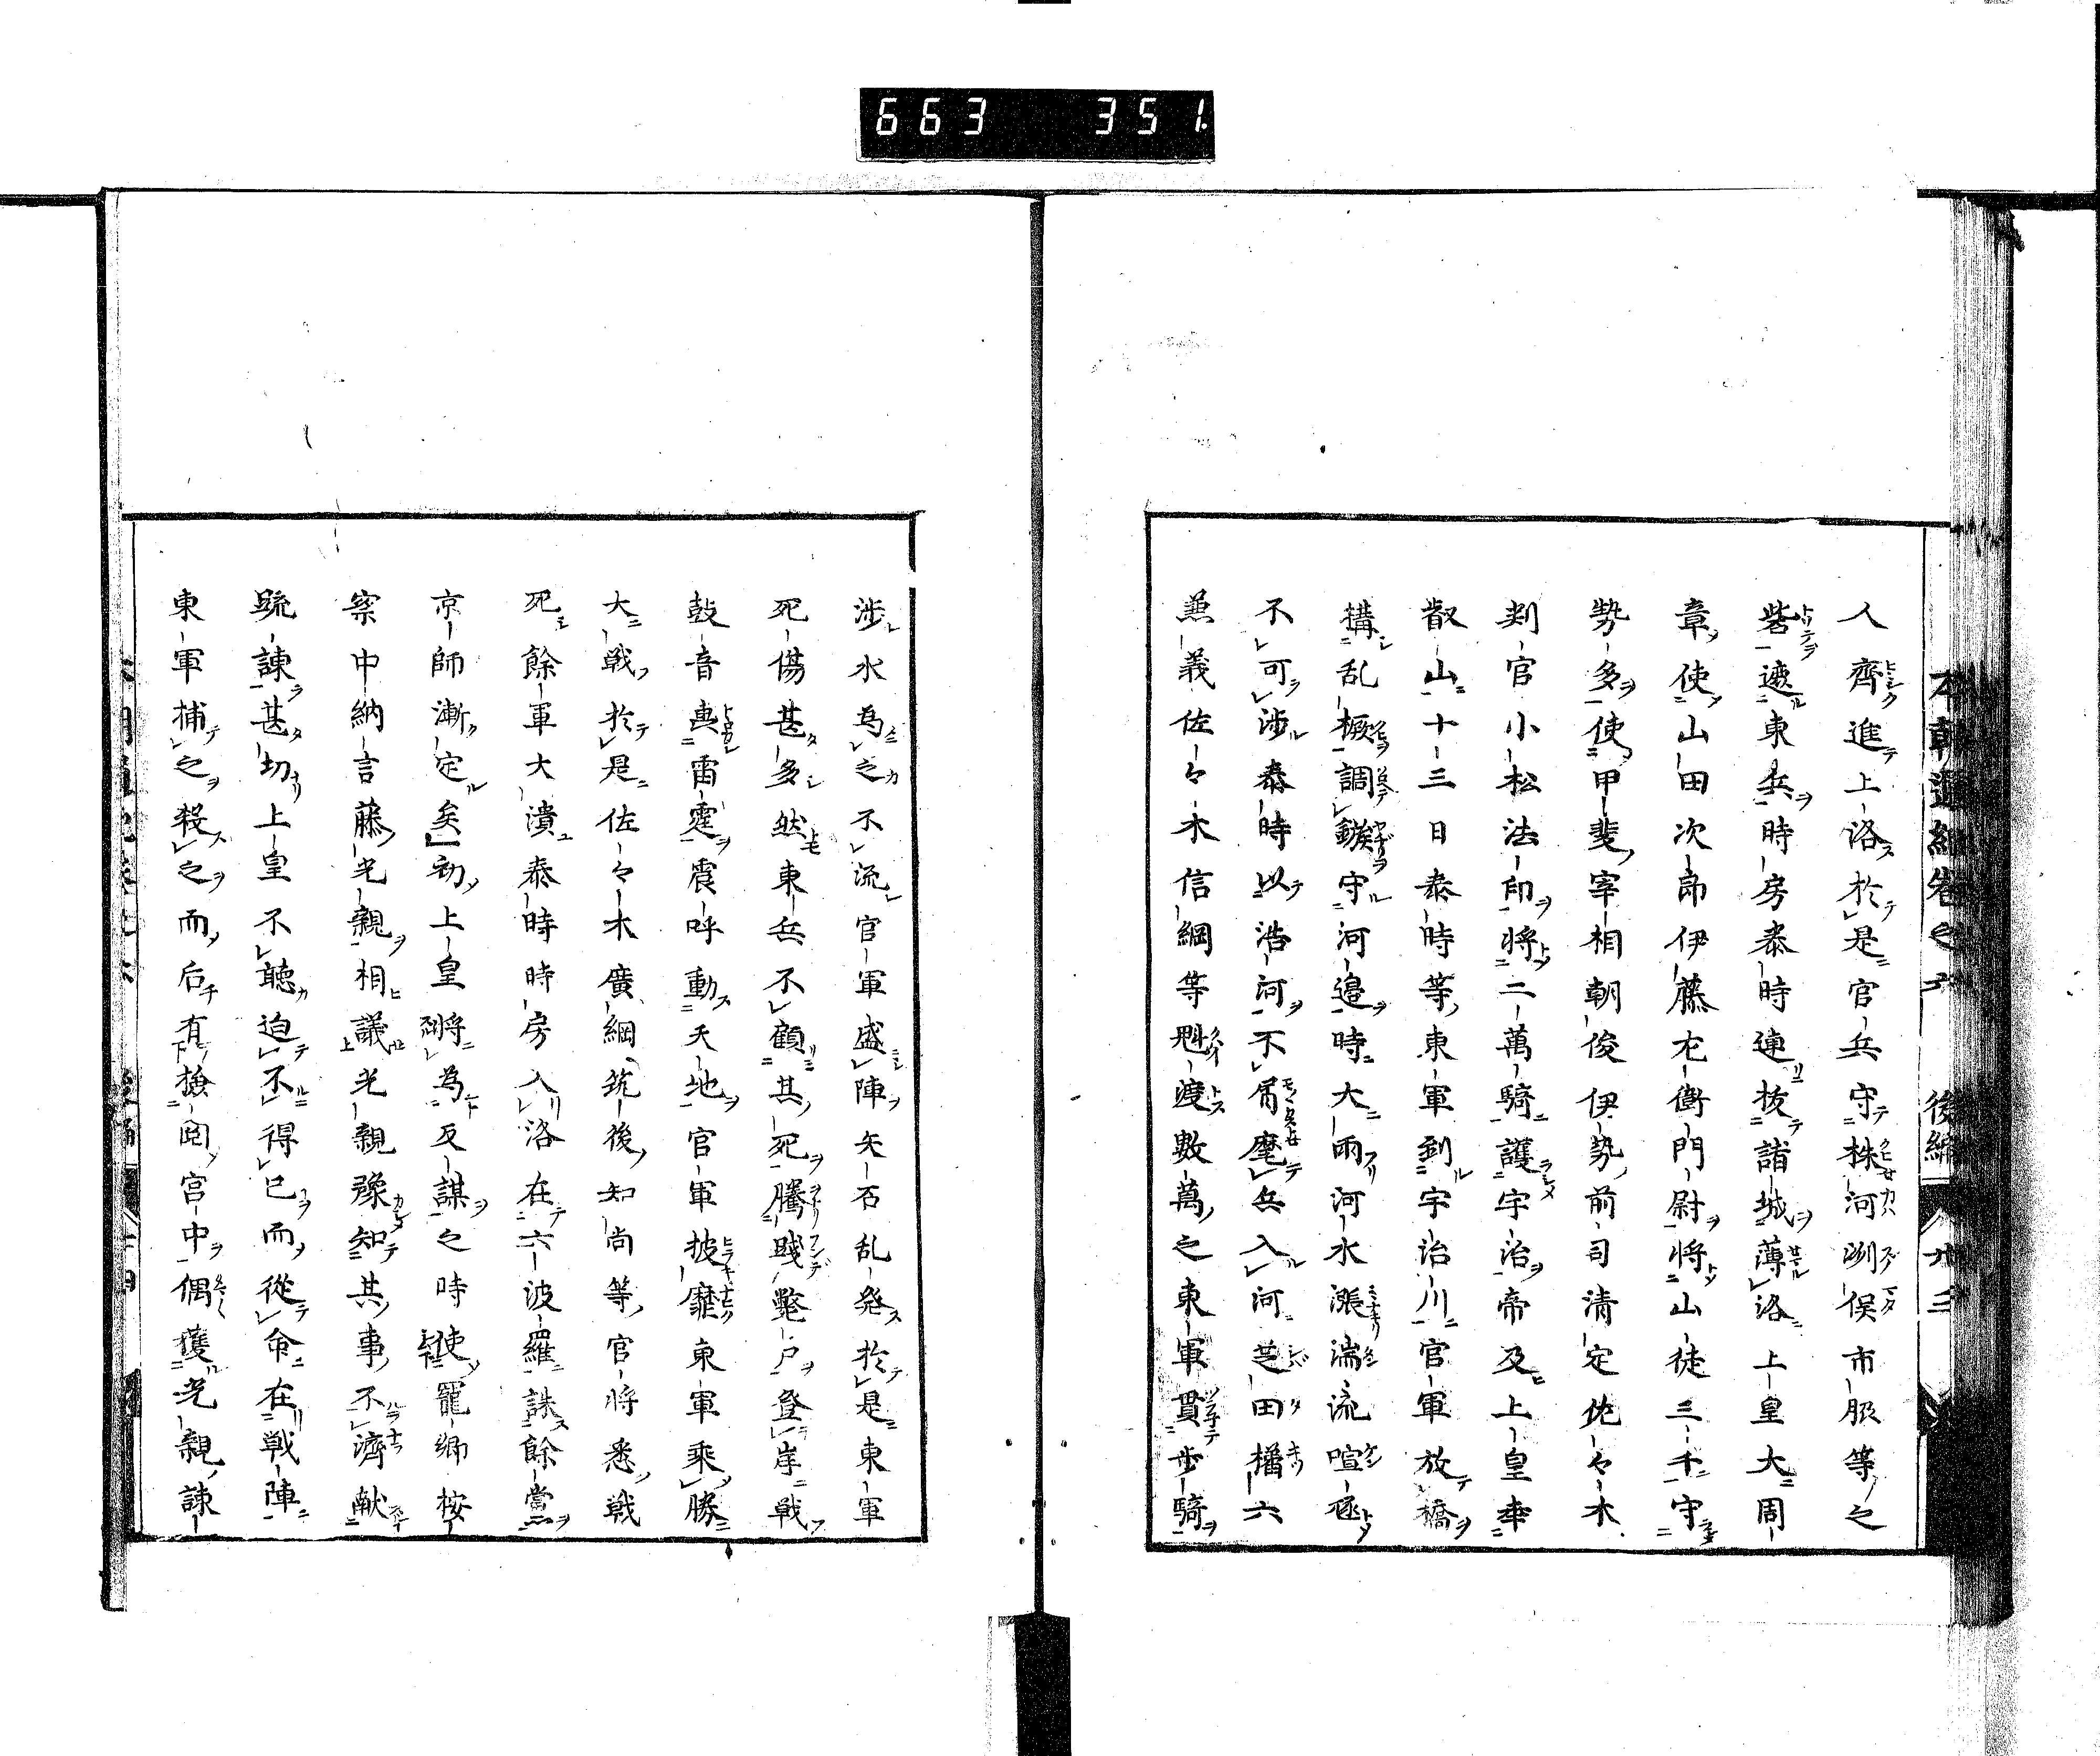 663 351
人齊進上洛於是官兵守株河洲俣市脇等之
砦遮東兵時房泰時連拔諸城薄洛上皇大周
章使山田次郎伊藤左衛門尉將山徒三千守
勢多使甲斐宰相朝俊伊勢前司清定佐々木
判官小松法印將二萬騎護宇治帝及上皇幸
叡山十三日泰時等東軍到宇治川官軍放橋
搆乱橛調鏃守河邊時大雨河水漲湍流喧
不可渉泰時以浩河不屑麾兵入河芝田橘六
兼義佐々木信綱等魁渡數萬之東軍貫步騎
渉水為之不流官軍盛陣矢石乱発於是東軍
死傷甚多然東兵不顧其死騰踐斃尸登岸戦
鼓音與雷霆震呼動天地官軍披靡東軍乘勝
大戦於是佐々木廣綱筑後知尚等官将悉戦
死餘軍大潰泰時時房入洛在六波羅誅餘黨
京師漸定矣初上皇將為反謀之時使寵卿按
察中納言藤光親相議光親豫知其事不濟献
䟽諌甚切上皇不聴迫不得已而從命在戦陣
東軍捕之殺之而后有撿閲宮中偶獲光親諌